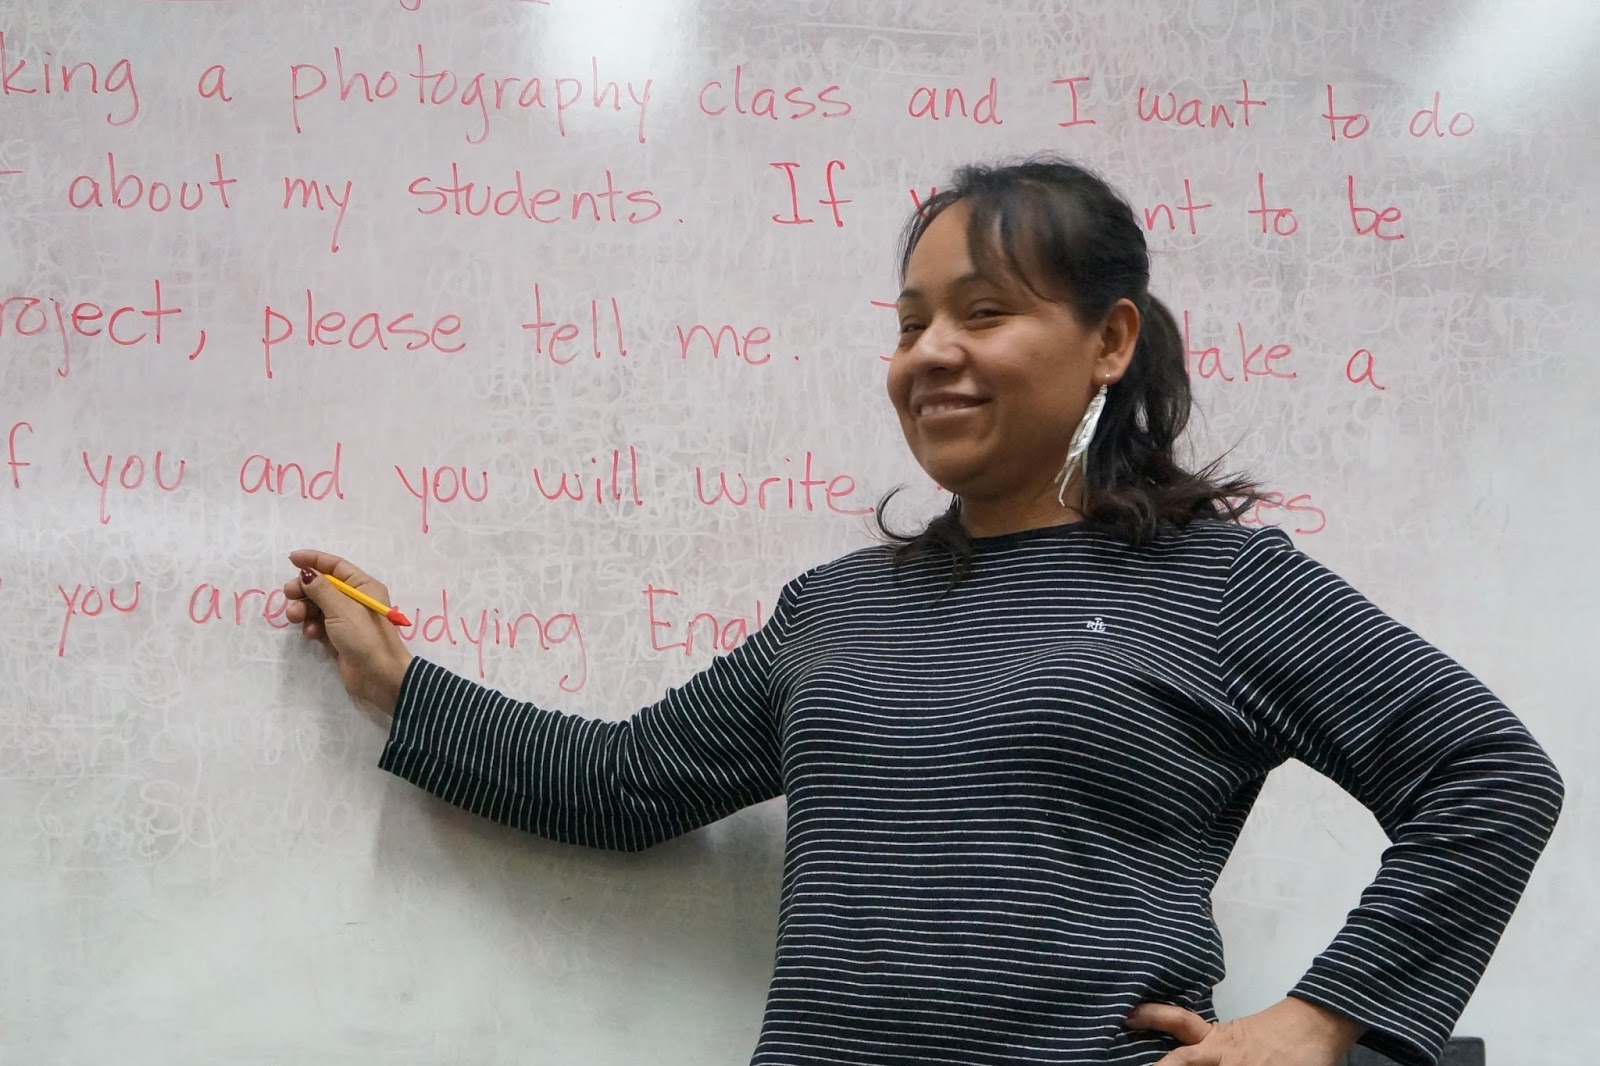 king a photography class and I want to do
about my students. If nt to be
roject, please tell me. take a
f you and you will write es
you are udying Engl
RJL